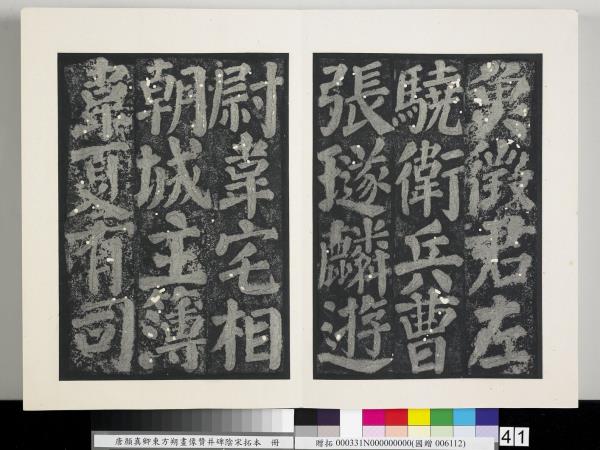 負徵君左
驍衛兵曹
張璲麟遊
尉韋宅相
朝城主薄
韋夏有司
唐顏真卿東方朔畫像贊并碑陰宋拓本 冊
贈拓 000331N000000000(國贈 006112)
41